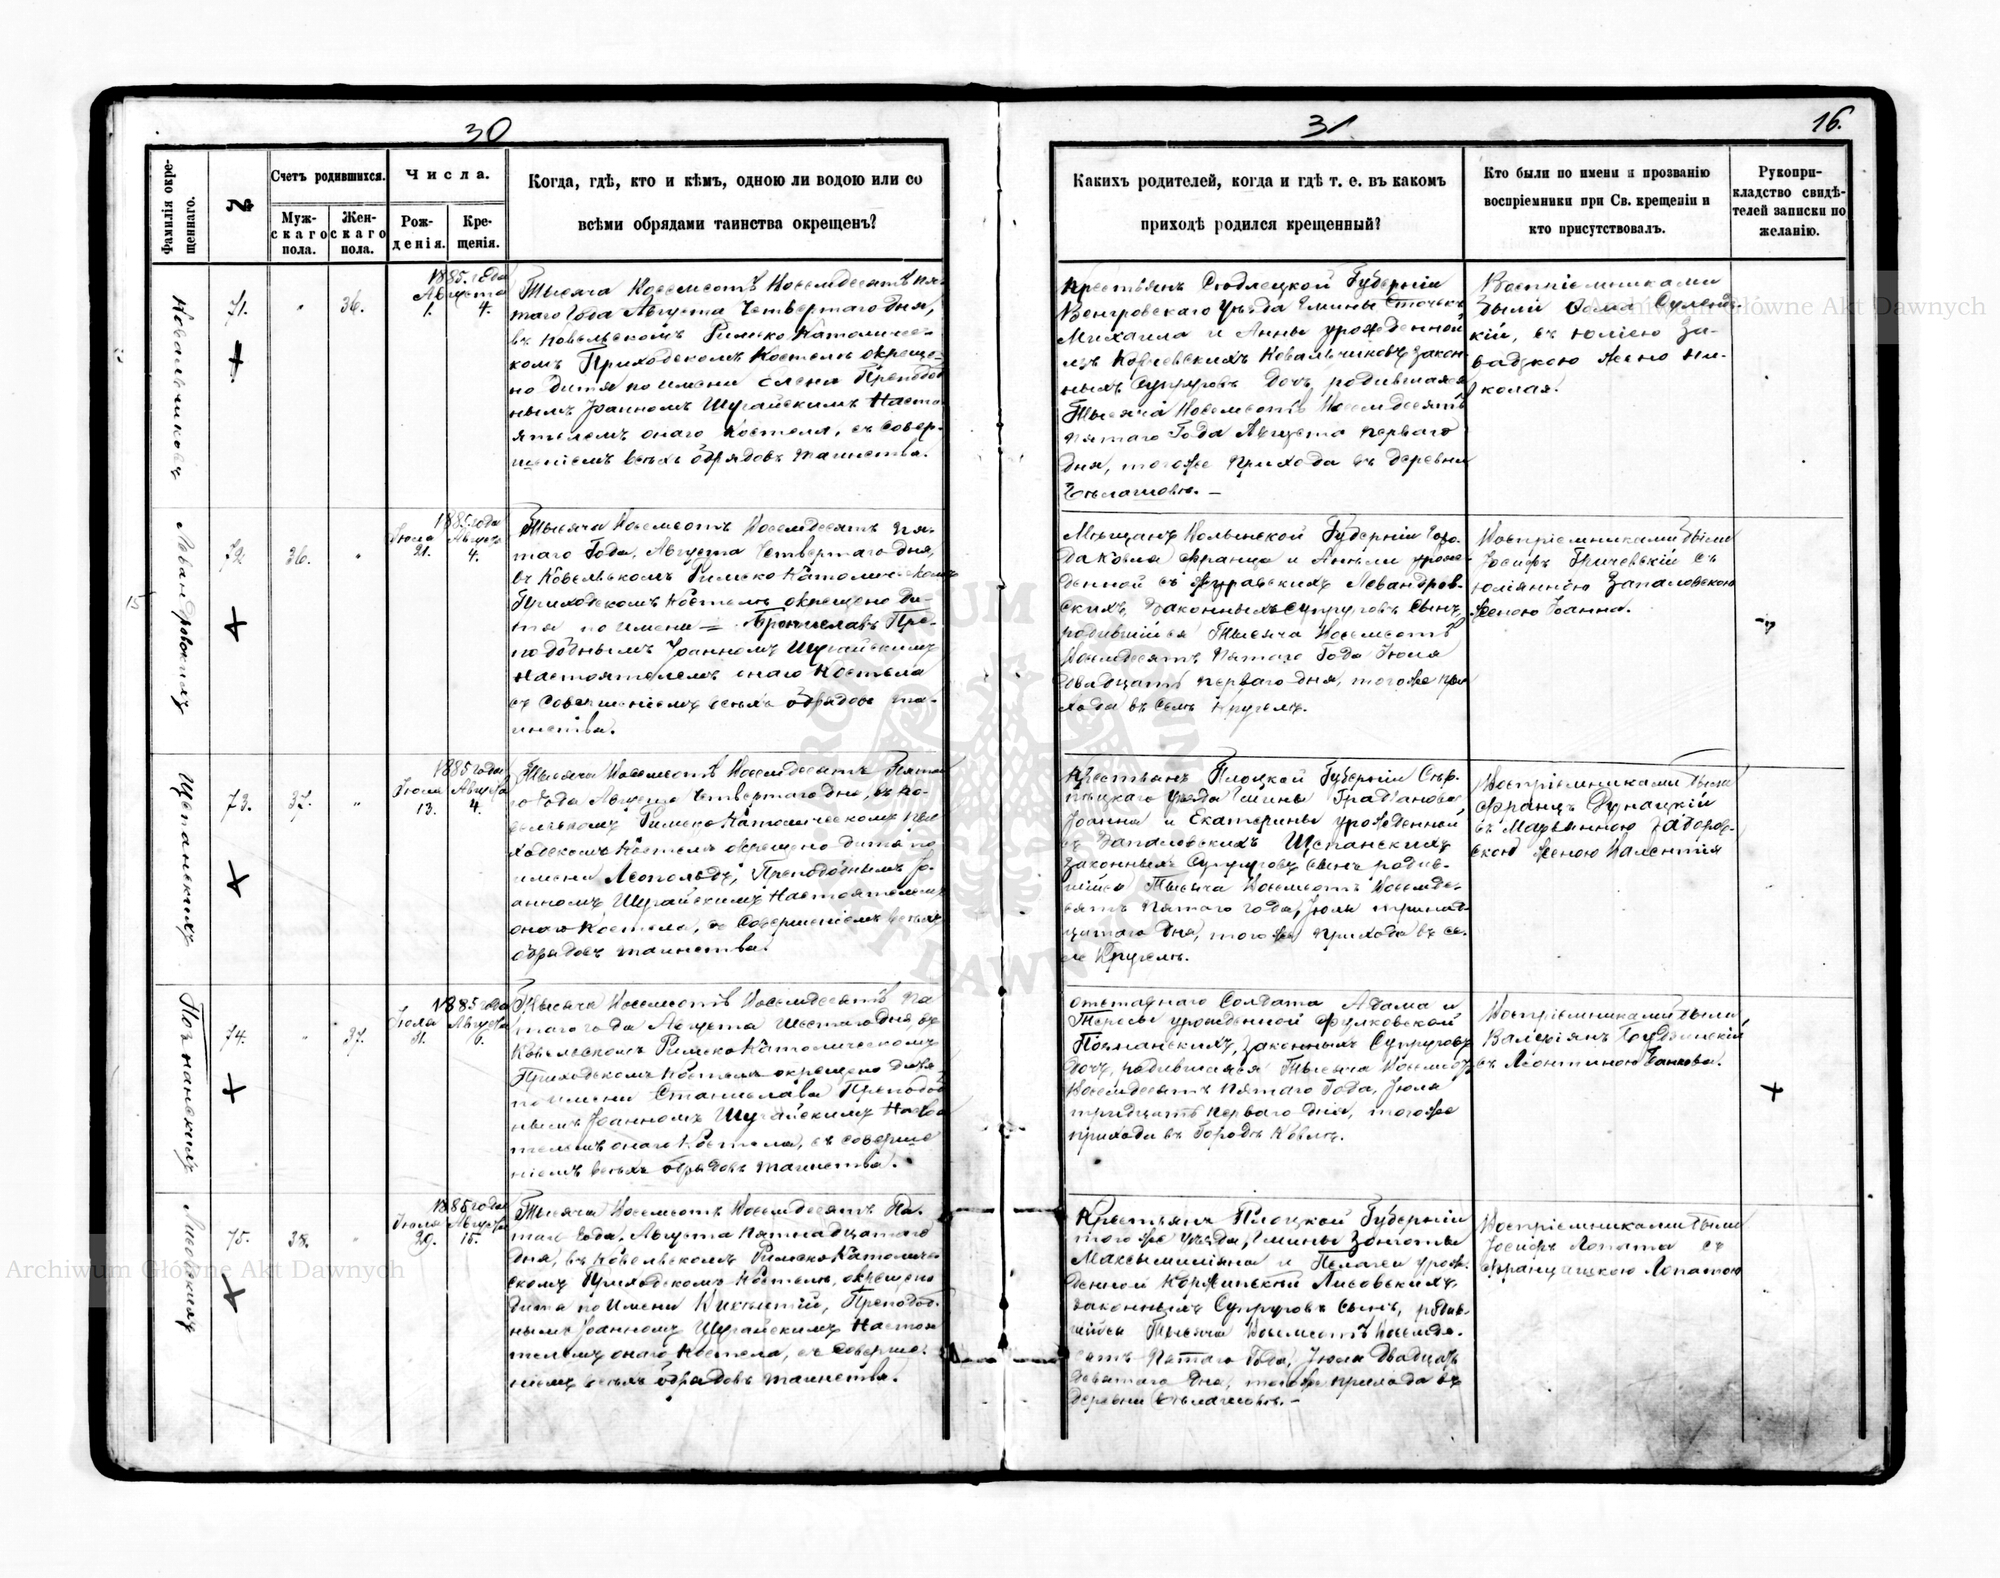 30
Фамилія окре-
щеннаго.
№
Счетъ родившихся.
Муж-
скаго
пола.
Жен-
скаго
пола.
Числа.
Рож-
денія.
Кре-
щенія.
Когда, гдѣ, кто и кѣмъ, одною ли водою или со
всѣми обрядами таинства окрещенъ?
Ковальчиковъ
71.
"
36.
1885 года
Августа
1.
4.
Тысяча Восемсотъ Восемдесятъ Пя-
таго Года Августа Четвертаго дня,
въ Ковельскомъ Римско Католичес-
комъ Приходскомъ Костелѣ окреще-
но дитя по имени Елена Преподоб
нымъ Іоанномъ Шугайскимъ Насто
ятелемъ онаго Костела, съ совер-
шеніемъ всѣхъ обрядовъ таинства.
Левандровскихъ
72
36.
"
1885 года
Іюля
21.
Августа
4.
Тысяча Восемсотъ Восемдесятъ Пя-
таго Года, Августа Четвертаго дня,
въ Ковельскомъ Римско Католическомъ
Приходскомъ Костелѣ окрещено ди-
тя по имени — Брониславъ Пре-
подобнымъ Іоанномъ Шугайскимъ
Настоятелемъ онаго Костела
съ совершеніемъ всѣхъ обрядовъ та-
инства.
15
Щепанскихъ
73.
37.
"
1885 года
Іюля
13.
Августа
4.
Тысяча Восемсотъ Восемдесятъ Пята
го Года Августа Четвертаго дня, въ Ко-
вельскомъ Римско Католическомъ При
ходскомъ Костелѣ окрещено дитя по
имени Леопольдъ, Преподобнымъ Іо-
анномъ Шугайскимъ Настоятелемъ
онаго Костела, съ Совершеніемъ всѣхъ
обрядовъ таинства.
Познанскихъ
74.
"
37.
1885 года
Іюля
31.
Августа
6.
Тысяча Восемсотъ Восемдесятъ Пя
таго года Августа Шестаго дня въ
Ковельскомъ Римско Католическомъ
Приходскомъ Костелѣ окрещено дитя
по имени Станислава Преподоб
нымъ Іоанномъ Шугайскимъ Настоя
телемъ онаго Костела, съ соверше
ніемъ всѣхъ обрядовъ таинства.
Лисовскихъ
75.
38.
"
1885 года
Іюля
29.
Августа
15.
Тысяча Восемсотъ Восемдесятъ Пя-
таго Года, Августа Пятнадцатаго
дня, въ Ковельскомъ Римско Католиче-
скомъ Приходскомъ Костелѣ, окрещено
дитя по имени Викентій, Преподоб-
нымъ Іоанномъ Шугайскимъ Настоя
телемъ онаго Костела, съ соверше-
ніемъ всѣхъ обрядовъ таинства.
31
16.
Какихъ родителей, когда и гдѣ т. е. въ какомъ
приходѣ родился крещенный?
Кто были по имени и прозванію
воспріемники при Св. крещеніи и
кто присутствовалъ.
Рукопри-
кладство свидѣ-
телей записки по
желанію.
Крестьянъ Сѣдлецкой Губерніи
Венгровскаго Уѣзда Гмины Сточекъ
Михаила и Анны урожденной
Ковальчиковъ закон-
ныхъ Супруговъ Дочь, родившаяся
Тысяча Восемсотъ Восемдесятъ
Пятаго Года Августа перваго
дня, тогоже Прихода въ деревни
Воспріемниками
были
кій, съ Юліею За-
вадскою женою Ни-
колая.
Мѣщанъ Волынской Губерніи Горо-
да Ковля Франца и Анели урож-
денной съ Журавскихъ Левандров-
скихъ, Законныхъ Супруговъ Сынъ,
родившійся Тысяча Восемсотъ
Восемдесятъ Пятаго Года Іюля
двадцать перваго дня, тогоже при
хода въ селѣ Кругелѣ.
Воспріемниками были
Іосифъ съ
Юліянною Запаловскою
женою Іоанна.
Крестьянъ Плоцкой Губерніи Сѣр-
пецкаго Уѣзда Гмины
Іоанна и Екатерины урожденной
съ Запаловскихъ Щепанскихъ
Законныхъ Супруговъ Сынъ родив-
шійся Тысяча Восемсотъ Восемде-
сятъ Пятаго года, Іюля тринад-
цатаго дня, тогоже Прихода въ се-
лѣ Кругелѣ.
Воспріемниками были
Францъ Дунацкій
съ Маріанною Забаров-
скою женою Валентія
отставнаго Солдата Адама и
Тересы урожденной Фулковской
Познанскихъ, законныхъ Супруговъ
дочь, родившаяся Тысяча Восемсотъ
Восемдесятъ Пятаго Года, Іюля
тридцать перваго дня, тогоже
прихода въ Городѣ Ковлѣ.
Воспріемниками были
Валеріянъ
съ Леонтиною
Крестьянъ Плоцкой Губерніи
того же Уѣзда, Гмины
Максимиліяна и Пелагеи урож-
денной Лисовскихъ
законныхъ Супруговъ Сынъ, родив-
шійся Тысяча Восемсотъ Восемде-
сятъ Пятаго Года, Іюля Двадцать
девятаго дня, тогоже прихода въ
деревни
Воспріемниками были
Іосифъ Лопата съ
Францишкою Лопатою
Archiwum Główne Akt Dawnych
Archiwum Główne Akt Dawnych